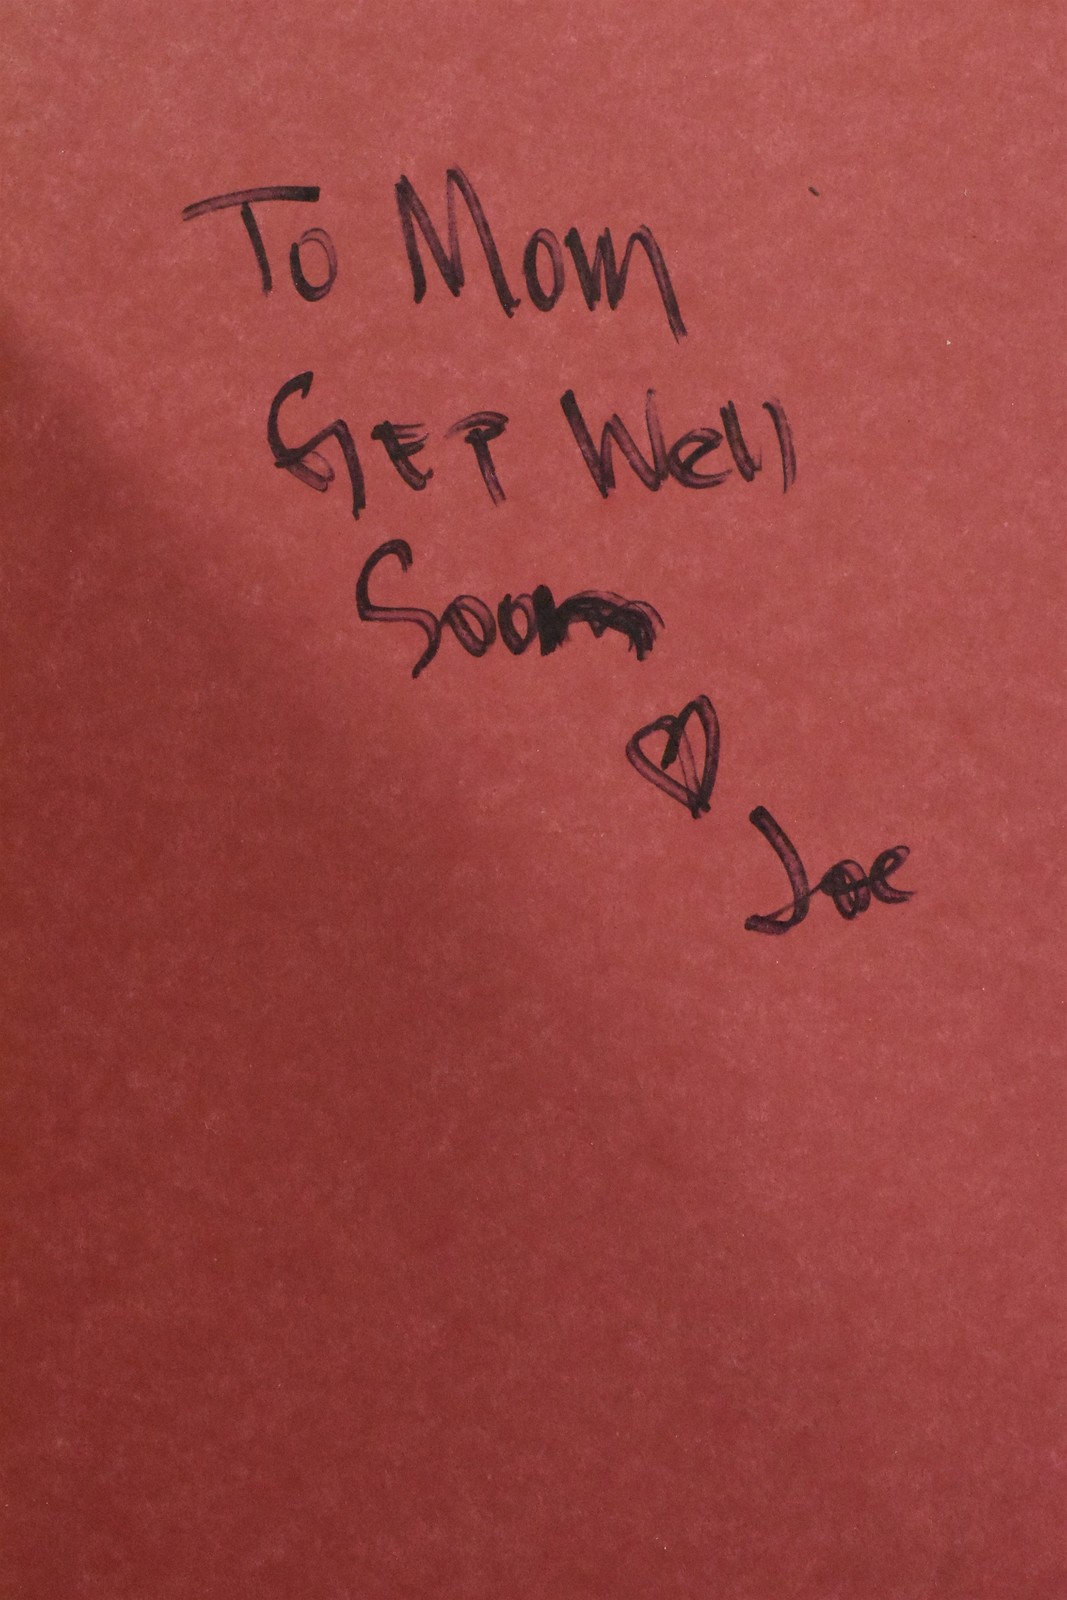 To Mom
GET Well
Soon
♡
Joe